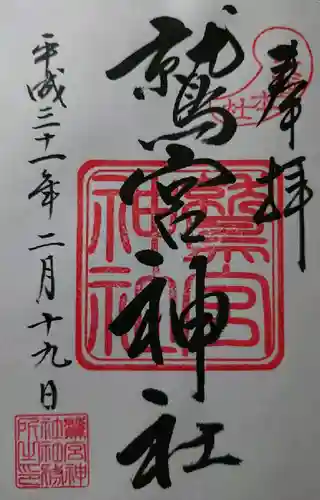 奉拝
鷲宮神社
平成三十一年二月十九日
鷲宮神社
鷲宮神社社務所之印